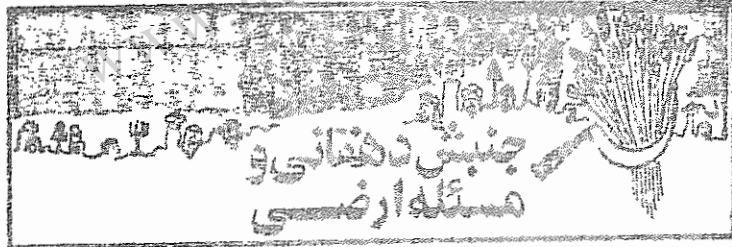 جنبش دهقانی و
مسئله ارضی